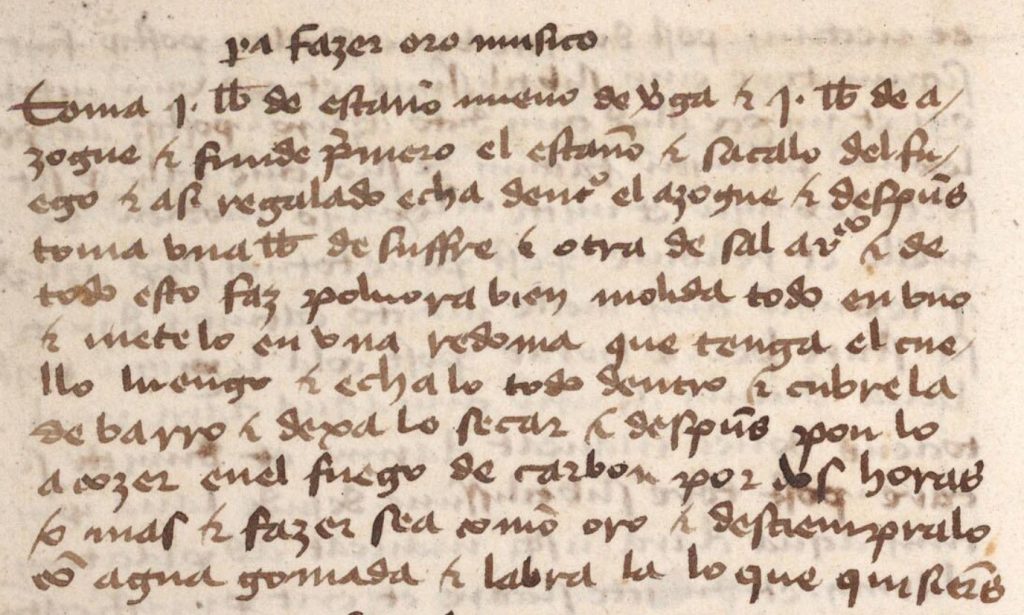 pa fazer oro musico
Toma j. lb de estaño nueuo de vga & j. lb de a/
zogue & funde pmero el estaño & sacalo del fu/
ego & asi regalado echa dento el azogue & despus
toma vna lb de suffre & otra de sal arco & de
todo esto faz poluora bien molida todo en vno
& metelo en vna redoma que tenga el cue/
llo luengo & echalo todo dentro & cubrela
de barro & dexa lo secar & despus pon lo
a cozer enel fuego de carbon por dos horas
o mas & fazer sea como oro & destiempralo
cō agua gomada & labra la lo que quisieres